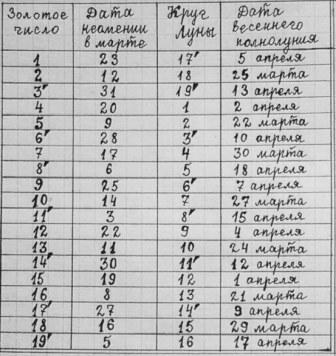 Золотое число | Дата неомении в марте | Круг Луны | Дата весеннего полнолуния
1 | 23 | 17′ | 5 апреля
2 | 12 | 18 | 25 марта
3′ | 31 | 19′ | 13 апреля
4 | 20 | 1 | 2 апреля
5 | 9 | 2 | 22 марта
6′ | 28 | 3′ | 10 апреля
7 | 17 | 4 | 30 марта
8′ | 6 | 5 | 18 апреля
9 | 25 | 6′ | 7 апреля
10 | 14 | 7 | 27 марта
11′ | 3 | 8′ | 15 апреля
12 | 22 | 9 | 4 апреля
13 | 11 | 10 | 24 марта
14′ | 30 | 11′ | 12 апреля
15 | 19 | 12 | 1 апреля
16 | 8 | 13 | 21 марта
17′ | 27 | 14′ | 9 апреля
18 | 16 | 15 | 29 марта
19′ | 5 | 16 | 17 апреля